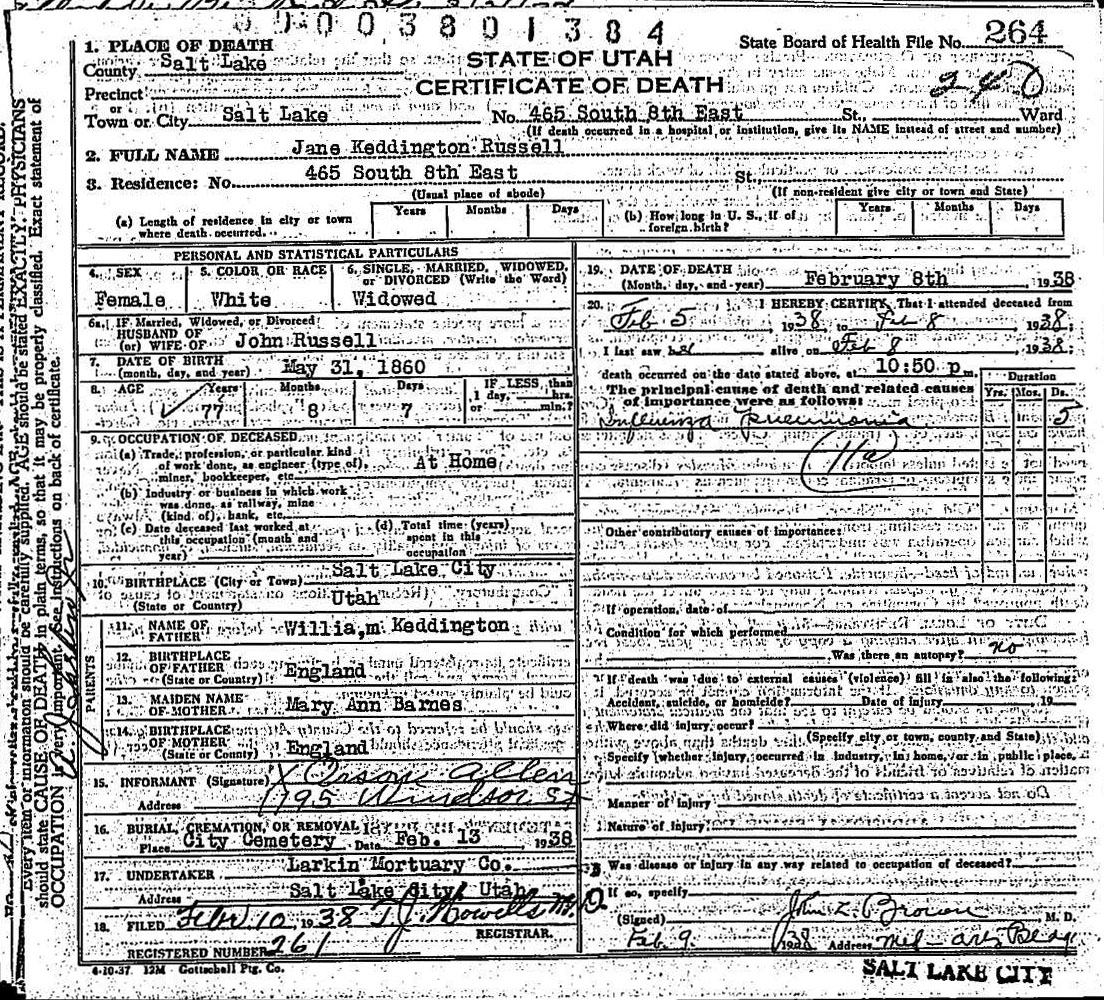 00003801384
State Board of Health File No. 264
1. PLACE OF DEATH
County Salt Lake
STATE OF UTAH
CERTIFICATE OF DEATH
240
Precinct
or
Town or City Salt Lake No. 465 South 8th East St., Ward
(If death occurred in a hospital or institution, give its NAME instead of street and number)
2. FULL NAME Jane Keddington Russell
3. Residence: No. 465 South 8th East St.
(Usual place of abode) (If non-resident give city or town and State)
(a) Length of residence in city or town where death occurred. Years Months Days
(b) How long in U. S., if of foreign birth? Years Months Days
PERSONAL AND STATISTICAL PARTICULARS
4. SEX Female
5. COLOR OR RACE White
6. SINGLE, MARRIED, WIDOWED, or DIVORCED (Write the Word) Widowed
6a. IF Married, Widowed, or Divorced
HUSBAND OF
(or) WIFE OF John Russell
7. DATE OF BIRTH
(month, day, and year) May 31, 1860
8. AGE Years 77 Months 8 Days 7 IF LESS than 1 day, hrs. or min.?
9. OCCUPATION OF DECEASED
(a) Trade, profession, or particular kind of work done, as engineer (type of), miner, bookkeeper, etc. At Home
(b) Industry or business in which work was done, as railway, mine (kind of), bank, etc.
(c) Date deceased last worked at this occupation (month and year)
(d) Total time (years) spent in this occupation
10. BIRTHPLACE (City or Town) Salt Lake City
(State or Country) Utah
PARENTS
11. NAME OF FATHER Willia,m Keddington
12. BIRTHPLACE OF FATHER
(State or County) England
13. MAIDEN NAME OF MOTHER Mary Ann Barnes
14. BIRTHPLACE OF MOTHER
(State or County) England
15. INFORMANT (Signature) X Orson Allen
Address 1795 Windsor St
16. BURIAL, CREMATION, OR REMOVAL
Place City Cemetery Date Feb. 13 1938
17. UNDERTAKER Larkin Mortuary Co.
Address Salt Lake City, Utah
18. FILED Febr 10 1938 T J Howells M.D.
REGISTRAR.
REGISTERED NUMBER 261
4-10-37 12M Gottschall Ptg. Co.
19. DATE OF DEATH
(Month, day, and year) February 8th 1938
20. I HEREBY CERTIFY, That I attended deceased from
Feb 5, 1938, to Feb 8, 1938;
I last saw her alive on Feb 8, 1938;
death occurred on the date stated above, at 10:50 p.m.
The principal cause of death and related causes of importance were as follows:
Duration
Yrs. Mos. Ds.
Influenza Pneumonia 5
11a
Other contributory causes of importance:
If operation, date of
Condition for which performed
Was there an autopsy? no
If death was due to external causes (violence) fill in also the following:
Accident, suicide, or homicide? Date of injury , 19
Where did injury occur?
(Specify city or town, county and State)
Specify whether injury occurred in industry, in home, or in public place.
Manner of injury
Nature of injury
Was disease or injury in any way related to occupation of deceased?
If so, specify
(Signed) John Z. Brown M. D.
Feb. 9. 1938 Address Med-Arts Bldg
SALT LAKE CITY
Every item of information should be carefully supplied. AGE should be stated EXACTLY. PHYSICIANS
should state CAUSE OF DEATH in plain terms, so that it may be properly classified. Exact statement of
OCCUPATION is very important. See instructions on back of certificate.